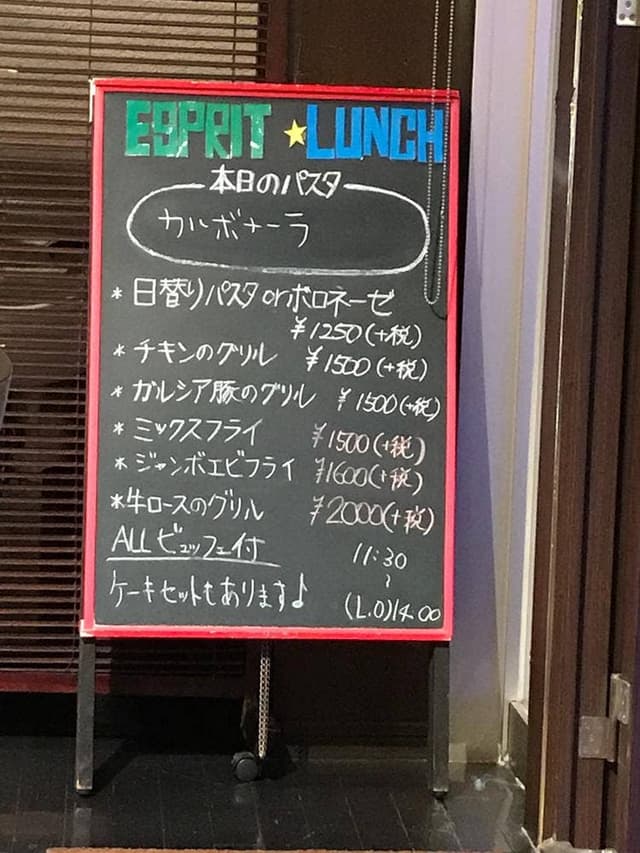 ESPRIT ★ LUNCH
本日のパスタ
カルボナーラ
* 日替りパスタorボロネーゼ
¥1250(+税)
* チキンのグリル ¥1500(+税)
* ガルシア豚のグリル ¥1500(+税)
* ミックスフライ ¥1500(+税)
* ジャンボエビフライ ¥1600(+税)
* 牛ロースのグリル ¥2000(+税)
ALLビュッフェ付
11:30
~
ケーキセットもあります♪
(L.O)14:00